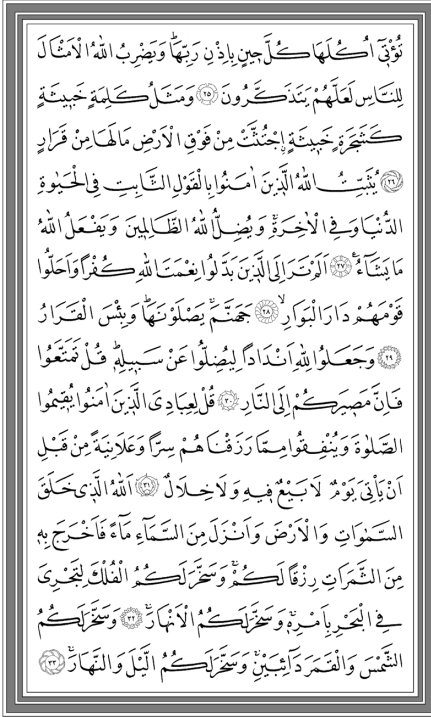 تُؤْتٖٓي اُكُلَهَا كُلَّ حٖينٍ بِاِذْنِ رَبِّهَاؕ وَيَضْرِبُ اللّٰهُ الْاَمْثَالَ
لِلنَّاسِ لَعَلَّهُمْ يَتَذَكَّرُونَ ﴿٢٥﴾ وَمَثَلُ كَلِمَةٍ خَبٖيثَةٍ
كَشَجَرَةٍ خَبٖيثَةٍۨ اجْتُثَّتْ مِنْ فَوْقِ الْاَرْضِ مَا لَهَا مِنْ قَرَارٍ
﴿٢٦﴾ يُثَبِّتُ اللّٰهُ الَّذٖينَ اٰمَنُوا بِالْقَوْلِ الثَّابِتِ فِي الْحَيٰوةِ
الدُّنْيَا وَفِي الْاٰخِرَةِۚ وَيُضِلُّ اللّٰهُ الظَّالِمٖينَ وَيَفْعَلُ اللّٰهُ
مَا يَشَٓاءُ ﴿٢٧﴾ اَلَمْ تَرَ اِلَى الَّذٖينَ بَدَّلُوا نِعْمَتَ اللّٰهِ كُفْرًا وَاَحَلُّوا
قَوْمَهُمْ دَارَ الْبَوَارِۙ ﴿٢٨﴾ جَهَنَّمَۚ يَصْلَوْنَهَاؕ وَبِئْسَ الْقَرَارُ
﴿٢٩﴾ وَجَعَلُوا لِلّٰهِ اَنْدَادًا لِيُضِلُّوا عَنْ سَبٖيلِهٖؕ قُلْ تَمَتَّعُوا
فَاِنَّ مَصٖيرَكُمْ اِلَى النَّارِ ﴿٣٠﴾ قُلْ لِعِبَادِيَ الَّذٖينَ اٰمَنُوا يُقٖيمُوا
الصَّلٰوةَ وَيُنْفِقُوا مِمَّا رَزَقْنَاهُمْ سِرًّا وَعَلَانِيَةً مِنْ قَبْلِ
اَنْ يَأْتِيَ يَوْمٌ لَا بَيْعٌ فٖيهِ وَلَا خِلَالٌ ﴿٣١﴾ اَللّٰهُ الَّذٖي خَلَقَ
السَّمٰوَاتِ وَالْاَرْضَ وَاَنْزَلَ مِنَ السَّمَٓاءِ مَٓاءً فَاَخْرَجَ بِهٖ
مِنَ الثَّمَرَاتِ رِزْقًا لَكُمْۚ وَسَخَّرَ لَكُمُ الْفُلْكَ لِتَجْرِيَ
فِي الْبَحْرِ بِاَمْرِهٖۚ وَسَخَّرَ لَكُمُ الْاَنْهَارَۚ ﴿٣٢﴾ وَسَخَّرَ لَكُمُ
الشَّمْسَ وَالْقَمَرَ دَٓائِبَيْنِۚ وَسَخَّرَ لَكُمُ الَّيْلَ وَالنَّهَارَۚ ﴿٣٣﴾